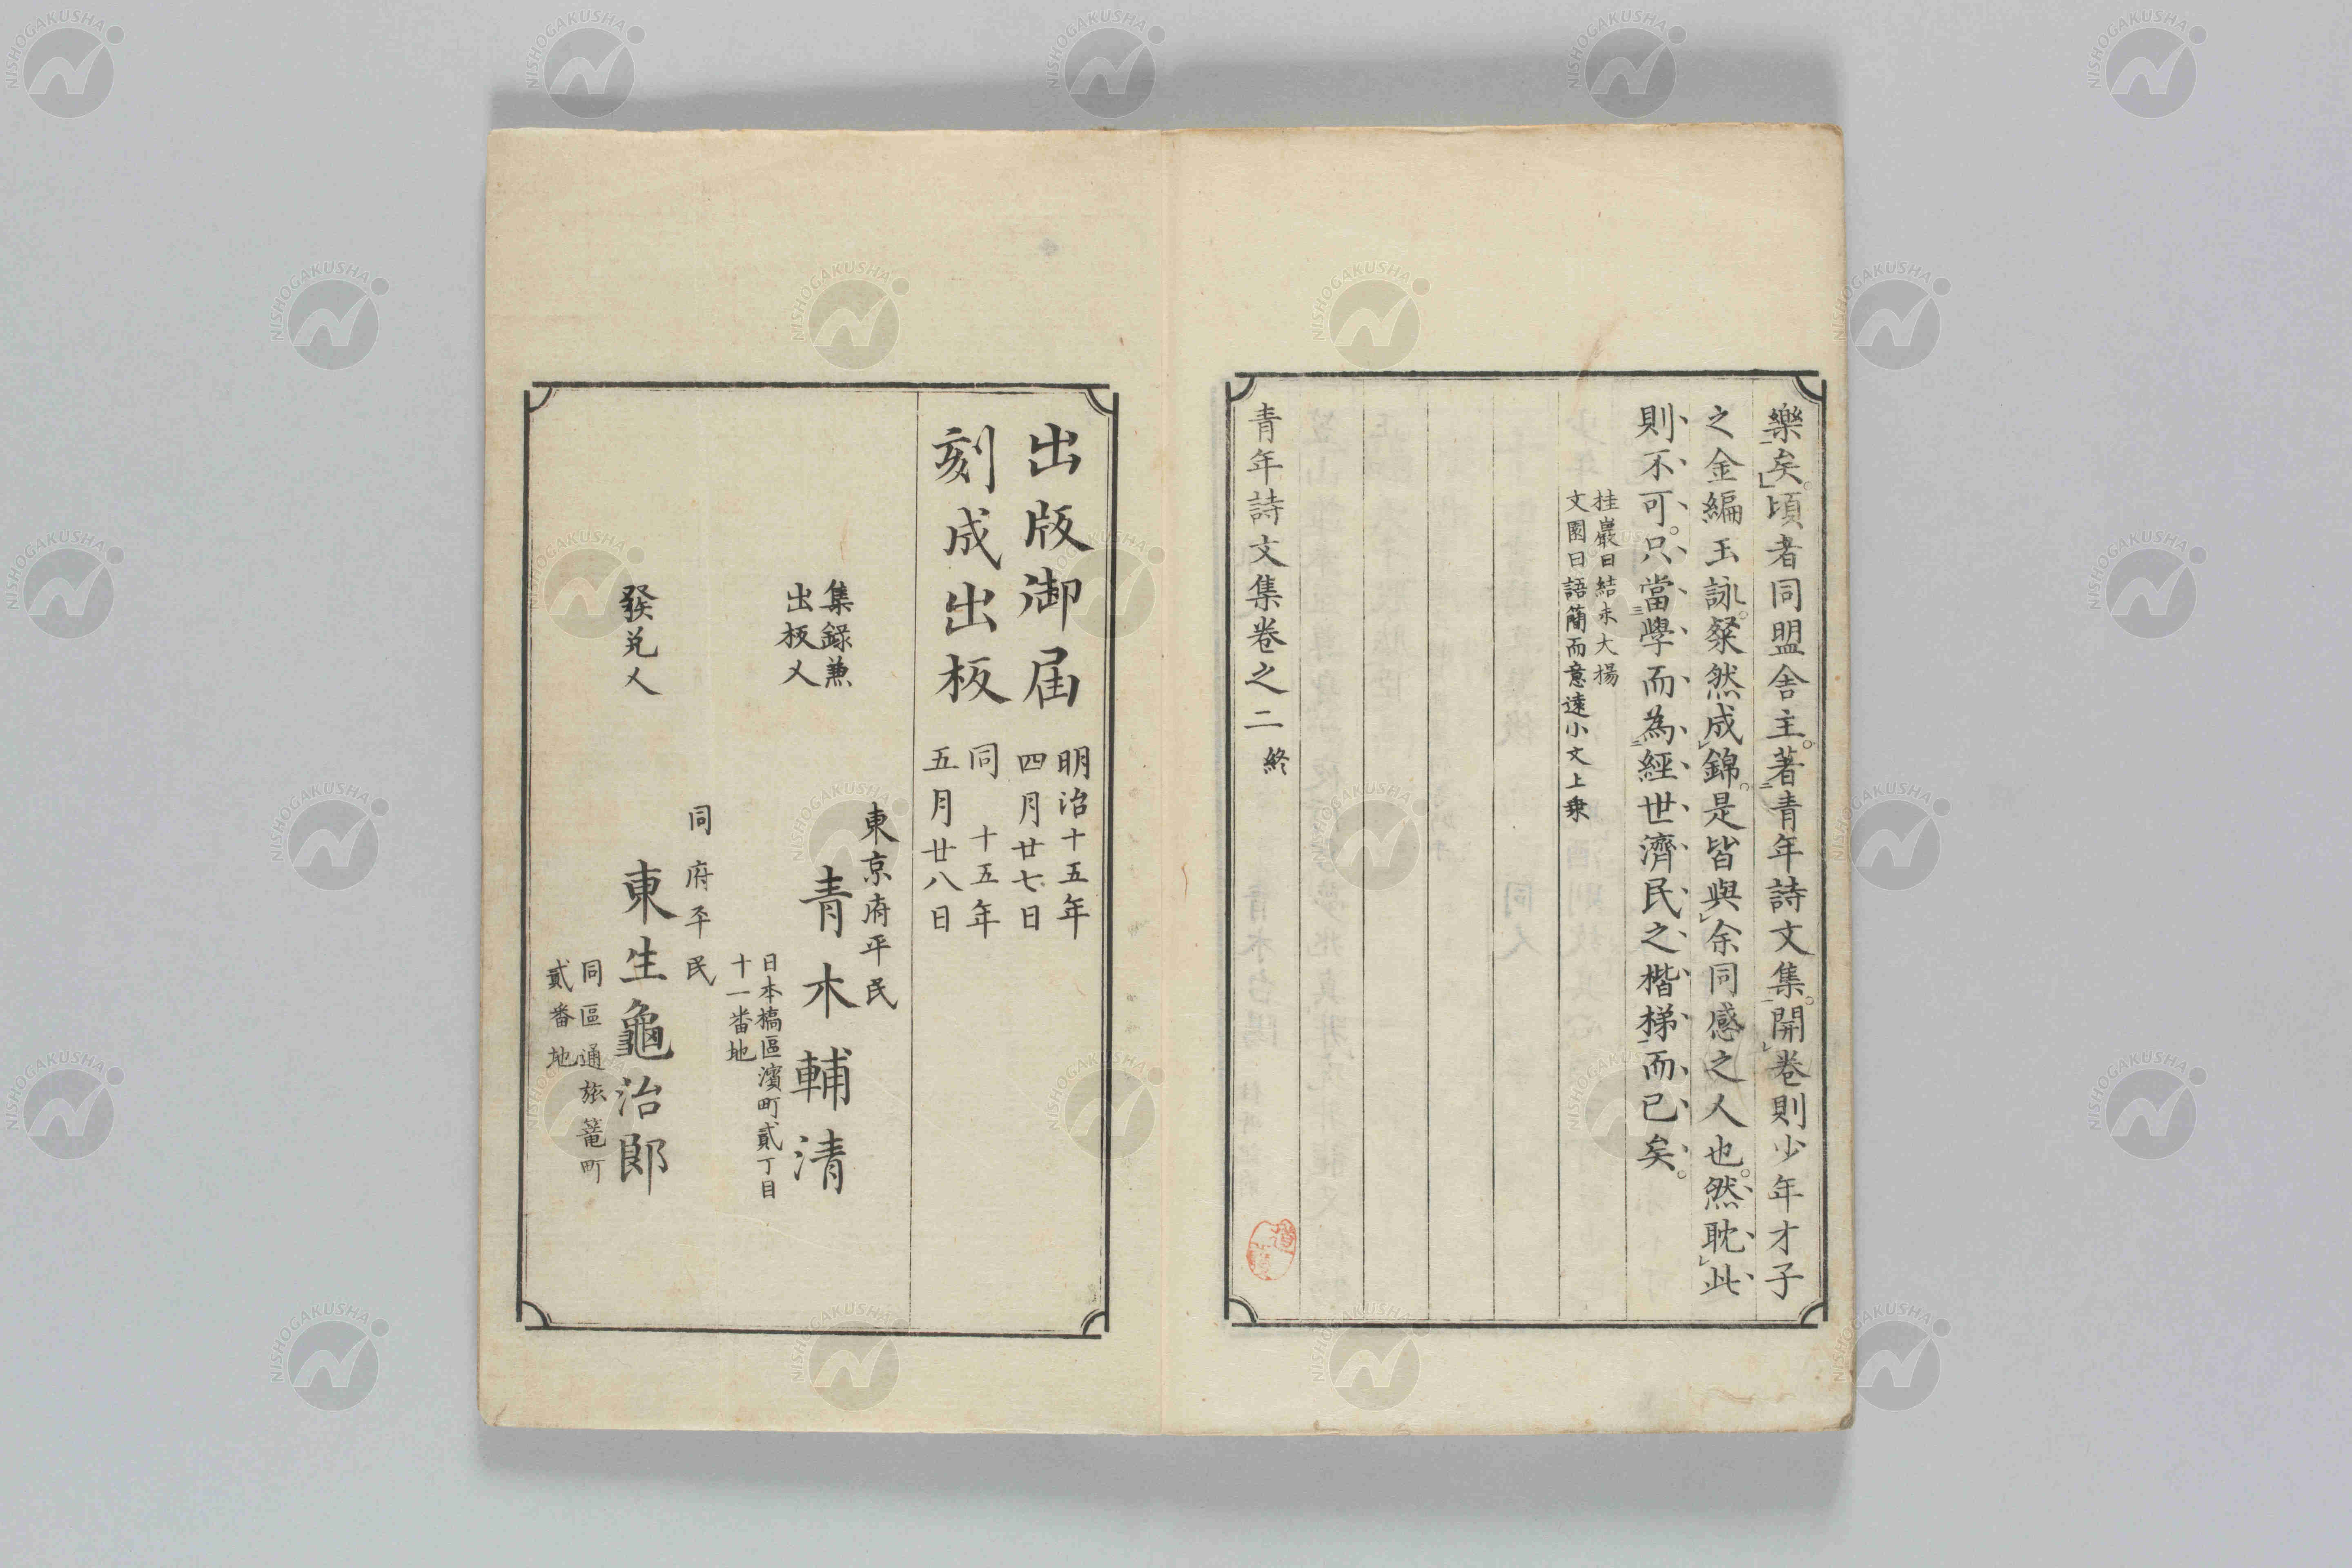 樂矣。頃者同盟舍主。著青年詩文集。開卷則少年才子
之金編玉詠。粲然成錦。是皆與余同感之人也。然耽此
則不可。只當學而為經世濟民之楷梯而已矣。
桂巖曰結末大揚
文園曰語簡而意遠小文上乗
青年詩文集卷之二終
出版御届
明治十五年
四月廿七日
刻成出板
同十五年
五月廿八日
集錄兼
出板人
東京府平民
青木輔清
日本橋區濱町貳丁目
十一番地
發兌人
同府平民
東生龜治郎
同區通旅篭町
貳番地
NISHOGAKUSHA